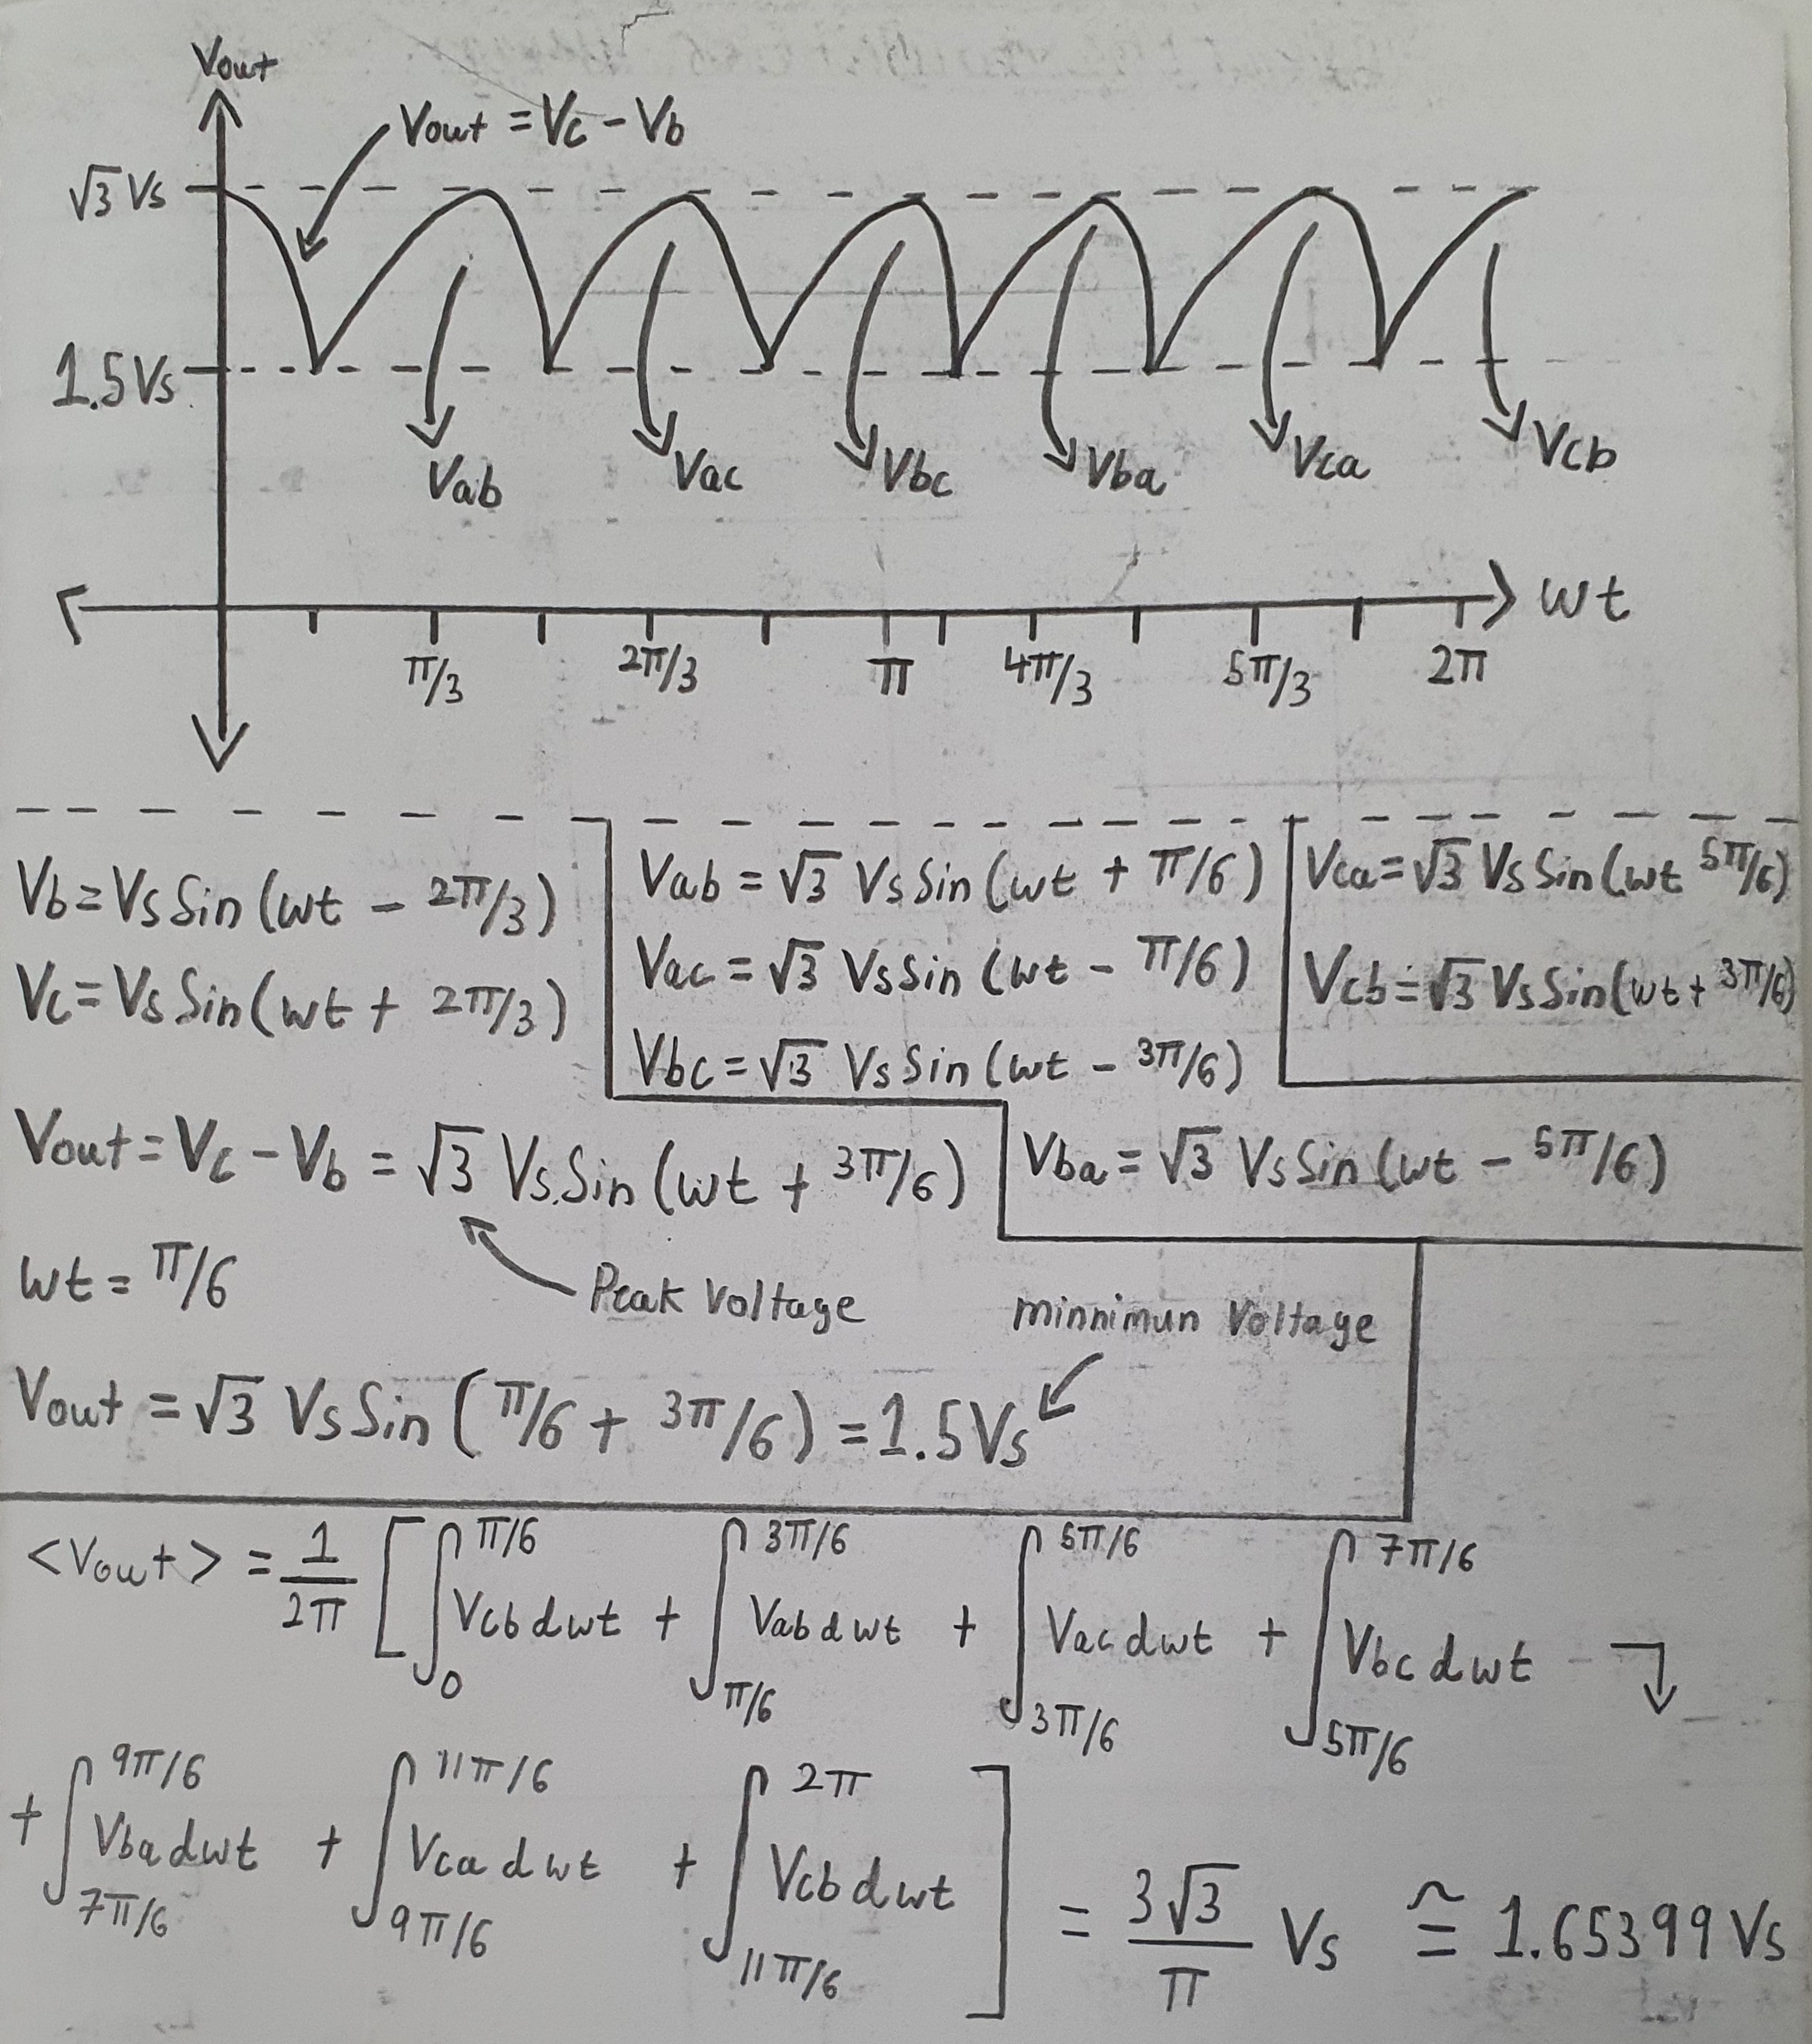 Vout
Vout = Vc - Vb
√3 Vs
1.5Vs
Vab
Vac
Vbc
Vba
Vca
Vcb
wt
π/3
2π/3
π
4π/3
5π/3
2π
Vb = Vs Sin (wt - 2π/3)
Vc = Vs Sin (wt + 2π/3)
Vab = √3 Vs Sin (wt + π/6)
Vac = √3 Vs Sin (wt - π/6)
Vbc = √3 Vs Sin (wt - 3π/6)
Vca = √3 Vs Sin (wt 5π/6)
Vcb = √3 Vs Sin (wt + 3π/6)
Vout = Vc - Vb = √3 Vs Sin (wt + 3π/6)
Vba = √3 Vs Sin (wt - 5π/6)
wt = π/6
Peak Voltage
minnimun Voltage
Vout = √3 Vs Sin (π/6 + 3π/6) = 1.5Vs
<Vout> = 1/2π [ ∫0^π/6 Vcb dwt + ∫π/6^3π/6 Vab dwt + ∫3π/6^5π/6 Vac dwt + ∫5π/6^7π/6 Vbc dwt
+ ∫7π/6^9π/6 Vba dwt + ∫9π/6^11π/6 Vca dwt + ∫11π/6^2π Vcb dwt ] = 3√3/π Vs ≅ 1.65399 Vs